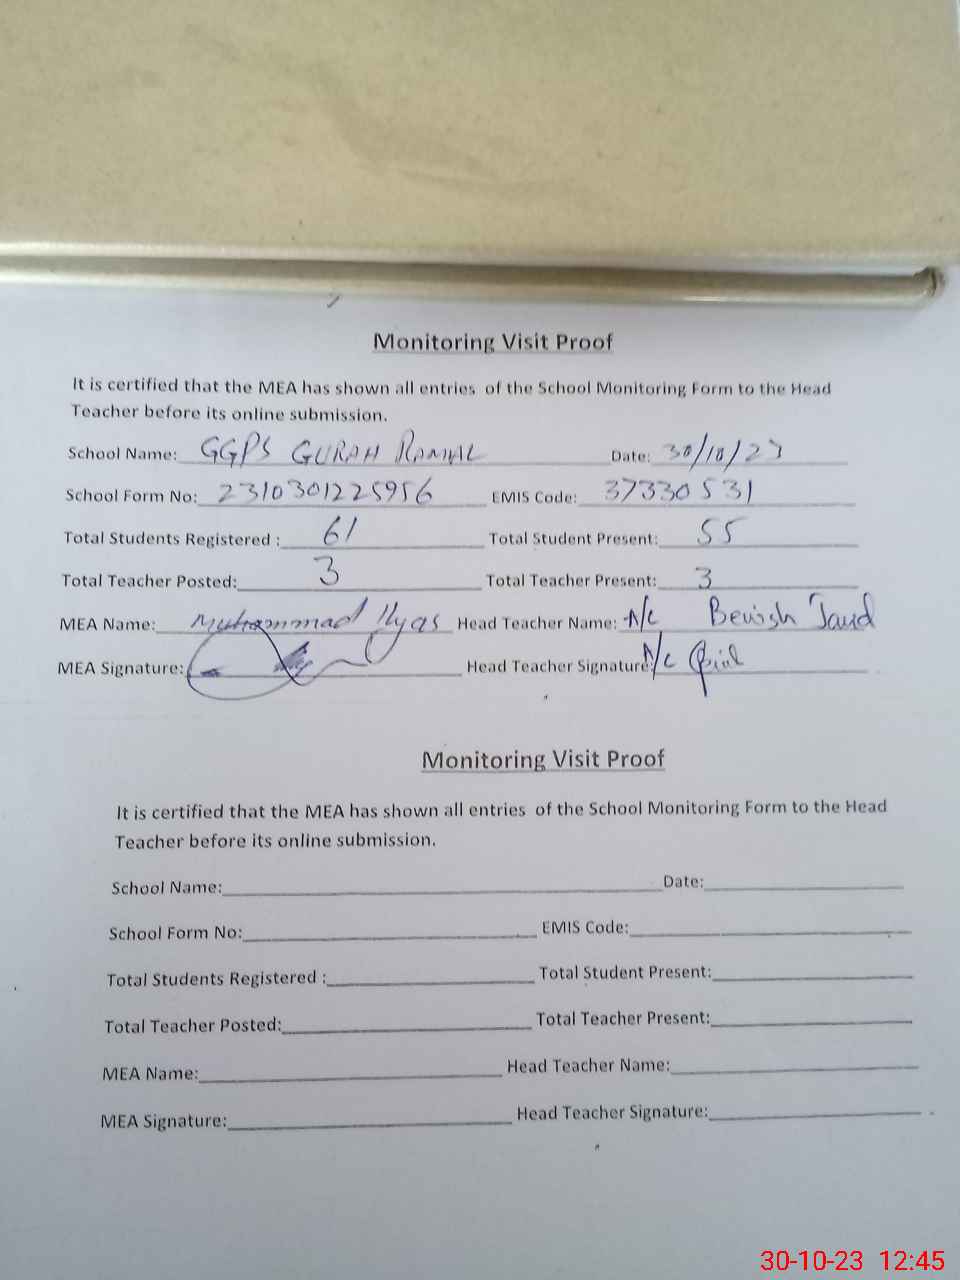 Monitoring Visit Proof
It is certified that the MEA has shown all entries of the School Monitoring Form to the Head
Teacher before its online submission.
School Name: GGPS GURAH RAMYAL Date: 30/10/23
School Form No: 2310301225956 EMIS Code: 37330531
Total Students Registered : 61 Total Student Present: 55
Total Teacher Posted: 3 Total Teacher Present: 3
MEA Name: Muhammad Ilyas Head Teacher Name: A/C
MEA Signature: Head Teacher Signature: A/C
Monitoring Visit Proof
It is certified that the MEA has shown all entries of the School Monitoring Form to the Head
Teacher before its online submission.
School Name: Date:
School Form No: EMIS Code:
Total Students Registered : Total Student Present:
Total Teacher Posted: Total Teacher Present:
MEA Name: Head Teacher Name:
MEA Signature: Head Teacher Signature:
30-10-23 12:45